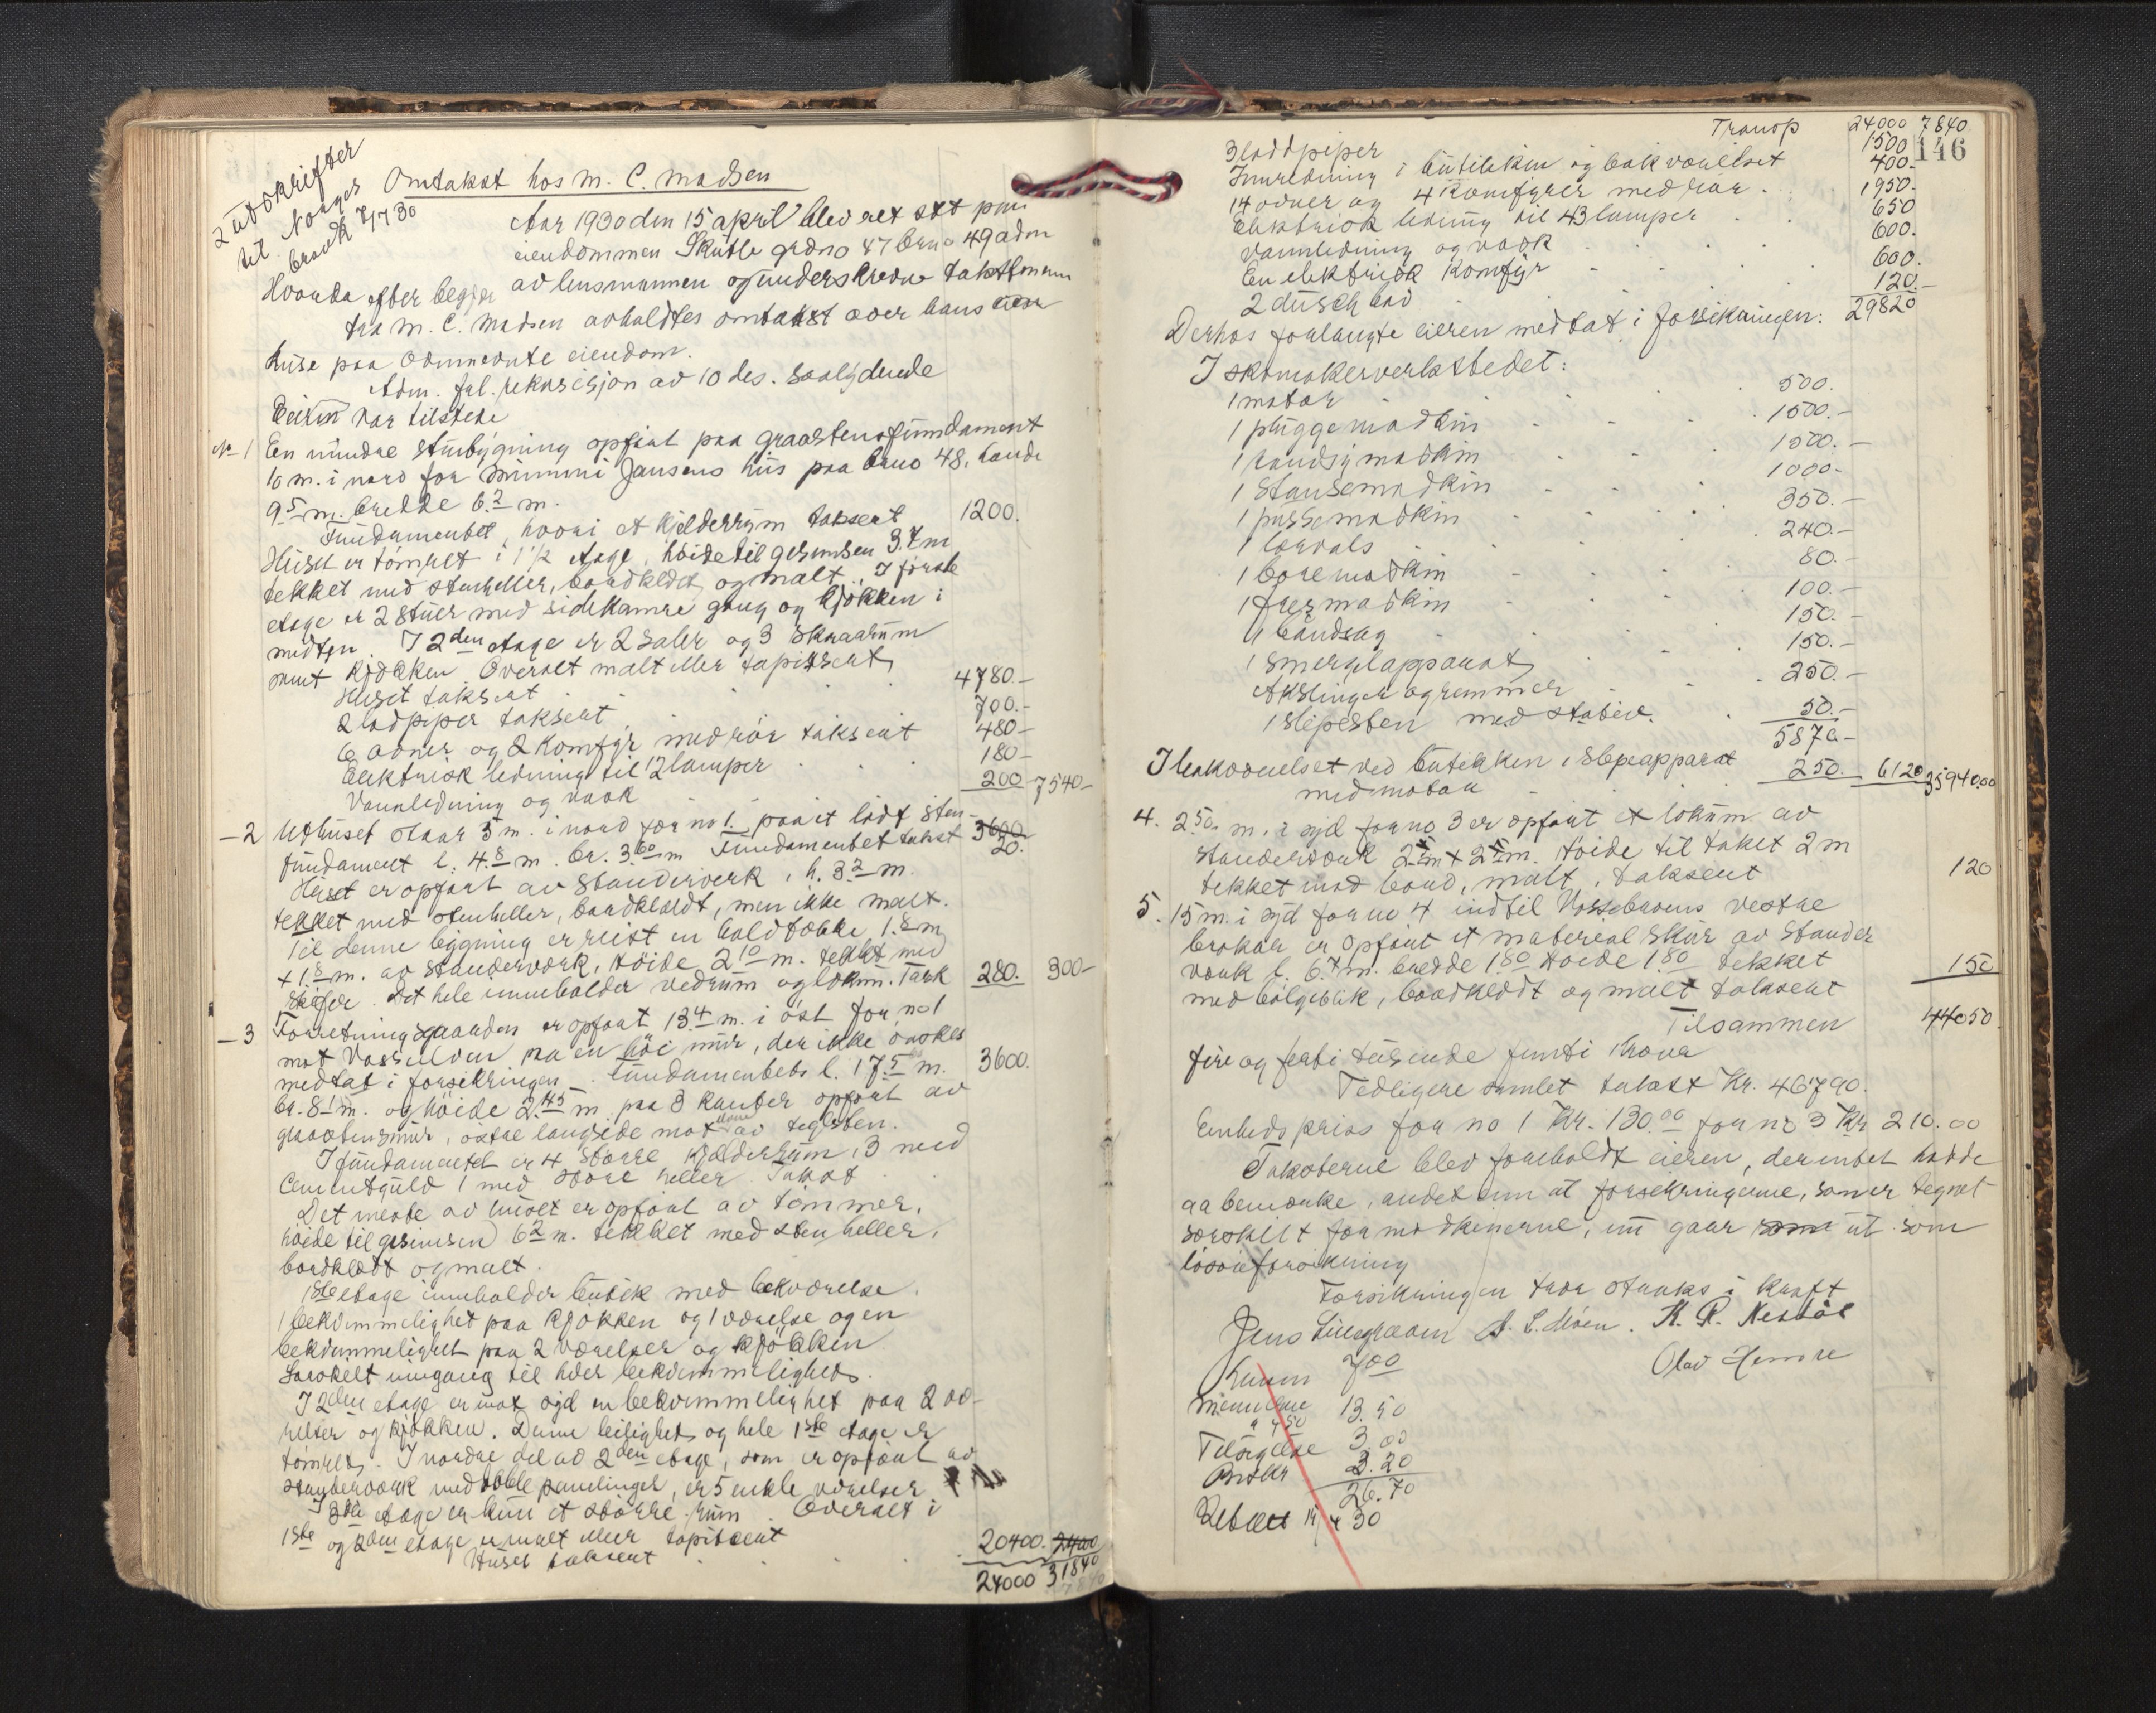 2 utskrifter
til Norges
brandk 7/7 30
Omtakst hos M. C. Madsen
Aar 1930 den 15 april blev ret sat paa
eiendommen Skutle grdno 47 brno 49 adm
av lensmannen og underskrevne takstmenn
Hvorda efter begjær
fra M. C. Madsen avholdtes omtakst over hans
huse paa ovnnevnte eiendom.
Adm. frl. rekvisisjon av 10 ds. saalydende
Eieren var tilstede
No 1 En mindre stuebygning opfört paa graastensfundament
10 m. i nord for Mimmi Jansens hus paa brno 48,
9.5 m. bredde 6.2 m.
Fundamentet, hvori et kjelderrum taksert 1200.
Huset er tömret i 1 1/2 etage, höide til gesimsen 3.7 m
tekket med stenheller, bordkledt og malt. I förste
etage er 2 stuer med sidekamre gang og kjökken i
midten. I 2den etage er 2 saler og 3 skraarum
samt kjökken Overalt malt eller tapissert
Huset taksert 4780.-
2 lodpiper taksert 700.-
6 ovner og 2 komfyr med rör taksert 480-
Elektrisk ledning til 12 lamper 180-
Vannledning og vask 200 7540-
- 2 Uthuset staar 5 m. i nord for no 1. paa et lödt sten-
fundament l. 4.8 m. br. 3.60 m Fundamentet takst 3600 20.
Huset er opfört av standerverk, h. 3.2 m.
tekket med stenheller, bordklædt, men ikke malt.
Til denne bygning er reist en halvtekke 1.8 m
+ 1.8 m. av standerverk, höide 2.10 m. tekket med
skifer. Det hele inneholder vedrum og lokum. Takst 280. 300-
- 3 Forretningsgaarden er opfört 13.4 m. i öst for no 1
mot Vosselven paa en höi mur, der ikke önskes
medtat i forsikringen. Fundamentets l. 17.5 m. 3600.
br. 8.1 m. og höide 2.45 m paa 3 kanter opfört av
graastensmur, östre langside mot elven av teglsten.
I fundamentet er 4 större kjelderrum, 3 med
Cementguld 1 med store heller Takst
Det meste av huset er opfört av tömmer,
höide til gesimsen 6.2 m. tekket med stenheller,
bordklædt og malt.
1ste etage inneholder butik med bakværelse.
1 bekvemmelighet paa kjökken og 1 værelse og en
bekvemmelighet paa 2 værelser og kjökken
Særskilt inngang til hver bekvemmelighet.
I 2den etage er mot syd en bekvemmelighet paa 2 væ-
relser og kjökken. Denne leilighet og hele 1ste etage er
tömret. I nordre del av 2den etage, som er opfört av
standerværk med doble panelinger, er 5 enkle værelser
I 3die etage er kun et större rum. Overalt i
1ste og 2den etage er malt eller tapissert
Huset taksert 20400. 7400
24000 31840
7840
146
Transp 24000 7840
3 loddpiper 1500
Innredning i butikken og bakværelset 400-
14 ovner og 4 komfyrer med rör 1950-
Elektrisk ledning til 43 lamper 650
Vannledning og vask 600.
En elektrisk komfyr 600.
2 dusch bad 120.-
29820
Derhos forlangte eieren medtat i forsikringen:
I skomakerverkstedet:
1 motor 500.
1 pluggemaskin 1500.-
1 randsymaskin 1500.-
1 stansemaskin 1000-
1 pussemaskin 350.-
1 lærvals 240.-
1 boremaskin 80.-
1 fresmaskin 100.-
1 båndsag 150.-
1 smergelapparat 150.-
Akslinger og remmer 250.-
1 slipesten med stativ. 50.-
5870-
I bakværelset ved butikken 1 slipeapparat
med motor 250. 6120 35940.00
4. 2.50 m. i syd for no 3 er opfört et lokum av
standerværk 2 m + 2 m. Höide til taket 2 m
tekket med bord, malt, taksert 120
5. 15 m. i syd for no 4 indtil Vossebroens vestre
brokar er opfört et material skur av stander
værk l. 6.7 m. bredde 1.80 Höide 1.80 tekket
med bölgeblik, bordkledt og malt taksert 150
Tilsammen 44050
fire og firti tusende femti kroner
Tidligere samlet takst Kr. 46790.
Enhedspriss for no 1 Kr. 130.00 for no 3 Kr 210.00
Taksterne blev foreholdt eieren, der intet hadde
aa bemerke, andet enn at forsikringerne, som er tegnet
særskilt for maskinerne, nu gaar som ut som
lösöreforsikring
Forsikringen træ straks i kraft
Jens Lillegraven A. L. Moen. K. R. Nesböe
Olav Hemre
7.00
Mennene
a 4.50 13.50
Tilsigelse 3.00
Protkr 3.20
26.70
Betalt 15/4 30